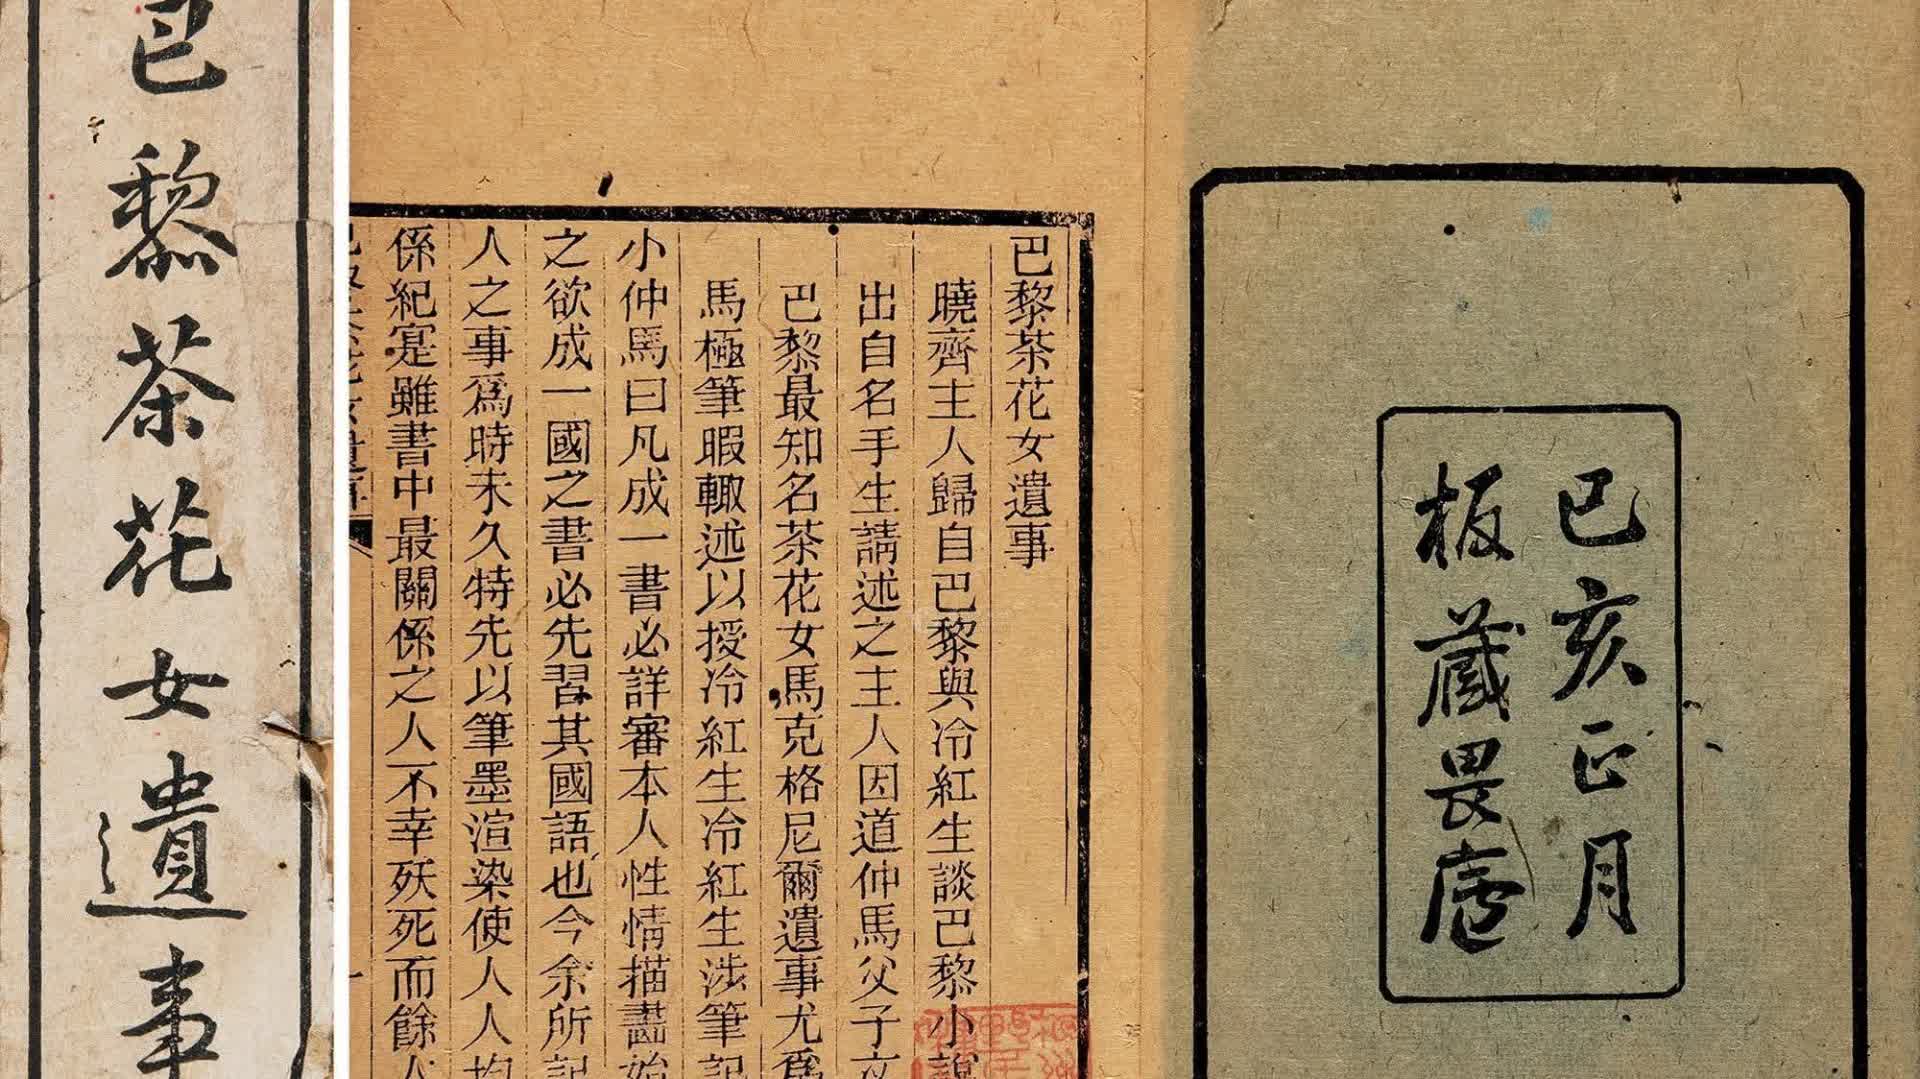 巴黎茶花女遺事
己亥正月
板藏畏廬
巴黎茶花女遺事
曉齊主人歸自巴黎與冷紅生談巴黎小說
出自名手生請述之主人因道仲馬父子文
巴黎最知名茶花女馬克格尼爾遺事尤爲
馬極筆暇輒述以授冷紅生冷紅生涉筆記
小仲馬曰凡成一書必詳審本人性情描畫始
之欲成一國之書必先習其國語也今余所記
人之事爲時未久特先以筆墨渲染使人人均
係紀寔雖書中最關係之人不幸殀死而餘人